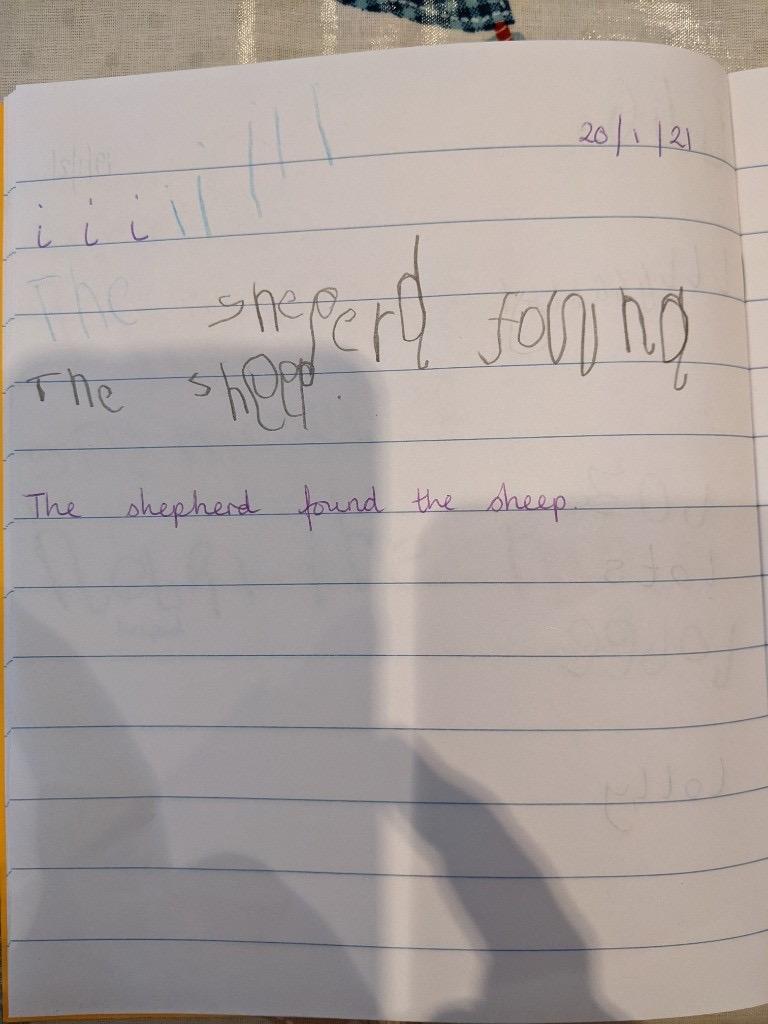 20/1/21
i i i i l l l l
The sheperd found
The sheep.
The shepherd found the sheep.